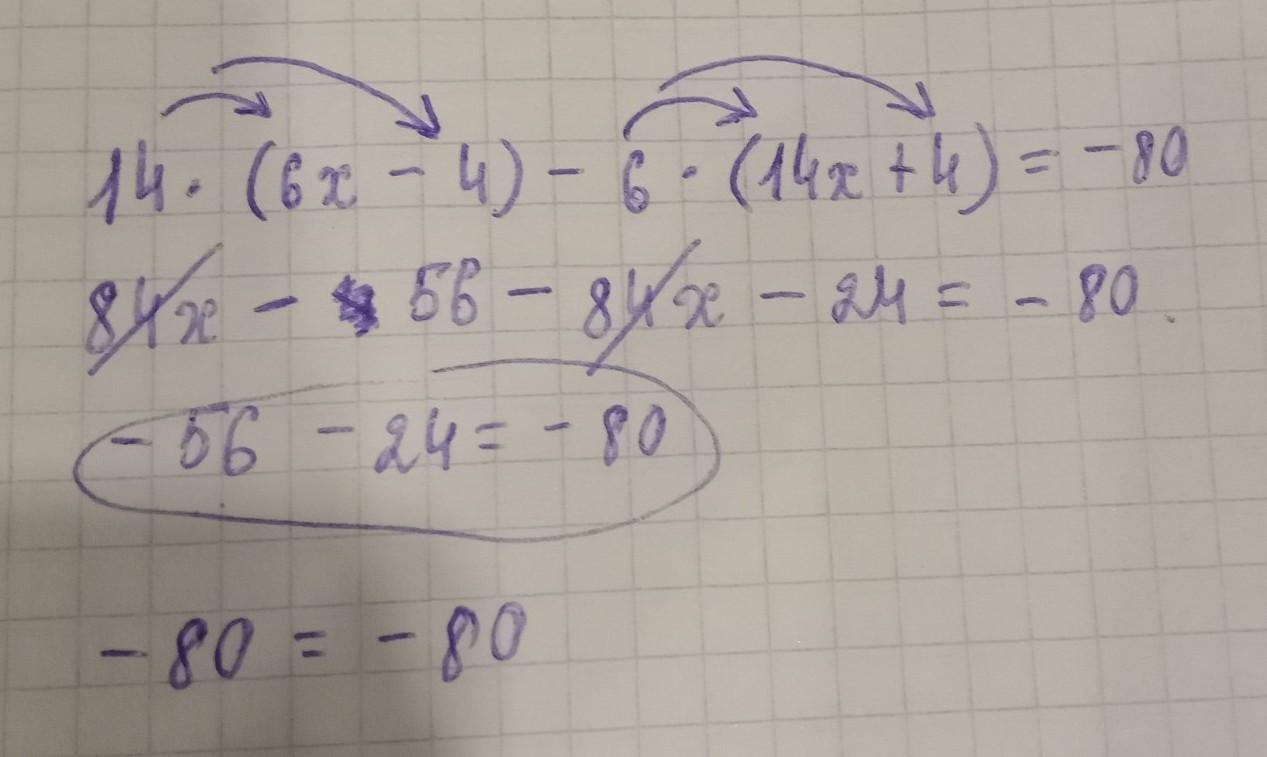 14 · (6x - 4) - 6 · (14x + 4) = -80
84x - 56 - 84x - 24 = - 80
- 56 - 24 = - 80
- 80 = - 80